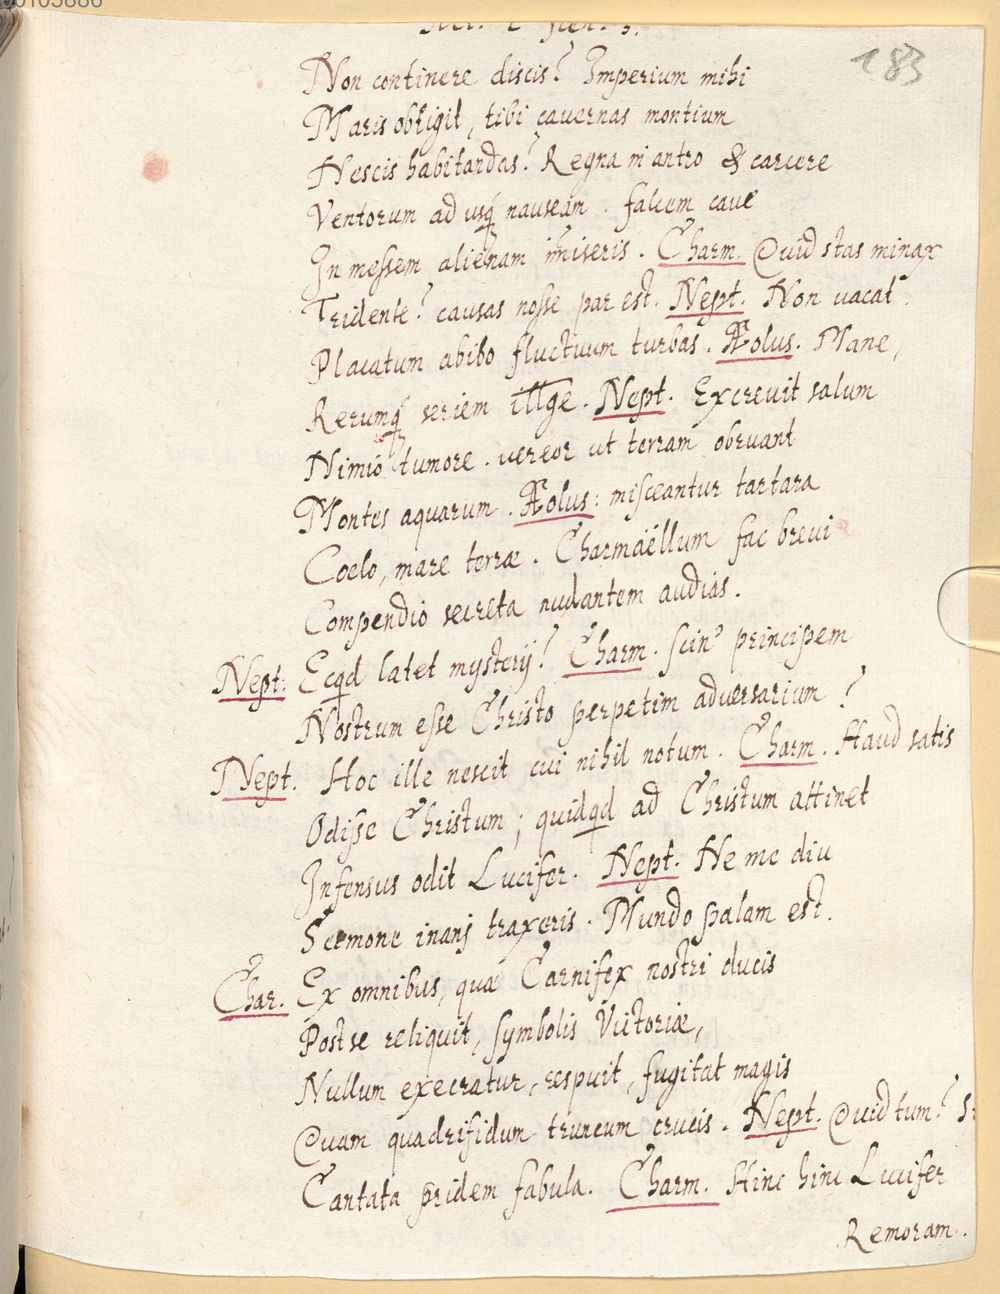 00105886
Act. 2 Scen. 3.
183
Non continere discis? Imperium mihi
Maris obtigit, tibi cauernas montium
Nescis habitandas? Regna in antro & carcere
Ventorum ad usq́ nauseam. falcem caue
In messem alienam imiseris. Charm. Quid stas minax
Tridente? causas nosse par est. Nept. Non uacat.
Placatum abibo fluctuum turbas. Æolus. Mane,
Rerumq́ seriem illge. Nept. Excreuit salum
Nimio tumore. uereor ut terram obruant
Montes aquarum. Æolus: misceantur tartara
Coelo, mare terræ. Charmaëllum fac breui
Compendio secreta nudantem audias.
Nept: Ecqd latet mysterij? Charm. scin' principem
Nostrum esse Christo perpetim aduersarium?
Nept. Hoc ille nescit cui nihil notum. Charm. Haud satis
Odisse Christum; quidqd ad Christum attinet
Infensus odit Lucifer. Nept. Ne me diu
Sermone inanj traxeris. Mundo palam est.
Char. Ex omnibus, quæ Carnifex nostri ducis
Post se reliquit, symbolis Victoriæ,
Nullum execratur, respuit, fugitat magis
Quam quadrifidum truncum crucis. Nept. Quid tum?
Cantata pridem fabula. Charm. Hinc hinc Lucifer
Remoram.